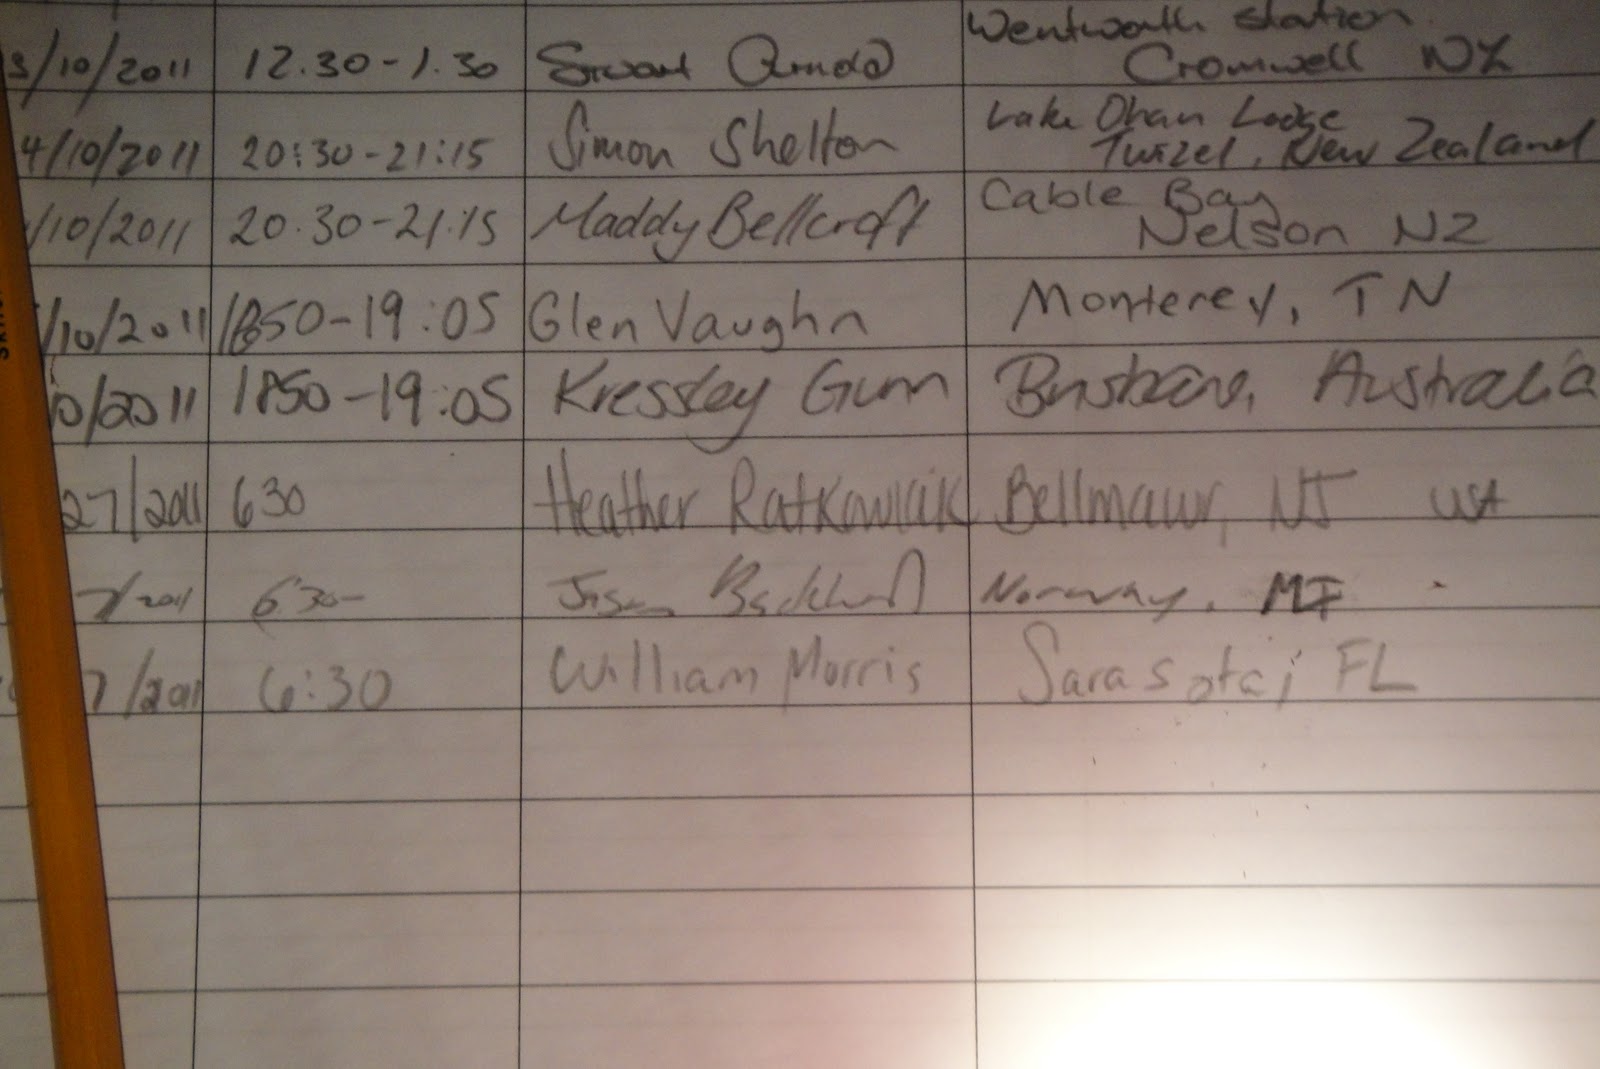 Wentworth Station
3/10/2011 12.30-1.30 Cromwell NZ
Lake Ohau Lodge
4/10/2011 20:30-21:15 Simon Shelton Twizel, New Zealand
Cable Bay
/10/2011 20.30-21.15 Maddy Bellcroft Nelson NZ
/10/2011 1850-19:05 Glen Vaughn Monterey, TN
10/2011 1850-19:05 Kressley Gunn Brisbane, Australia
27/2011 630 Heather Ratkowiak Bellmawr, NJ USA
7/2011 6:30- Norway, MI
7/2011 6:30 William Morris Sarasota, FL